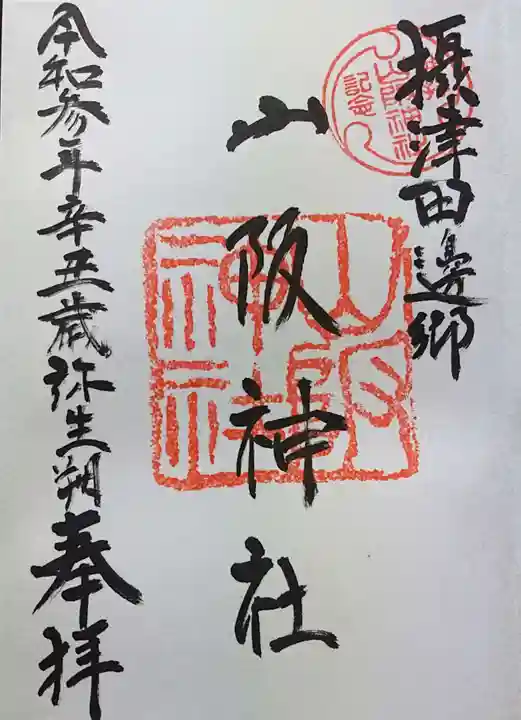 摂津田邊郷
山阪神社
令和参年辛丑歳弥生朔奉拝
山阪
神社
記念